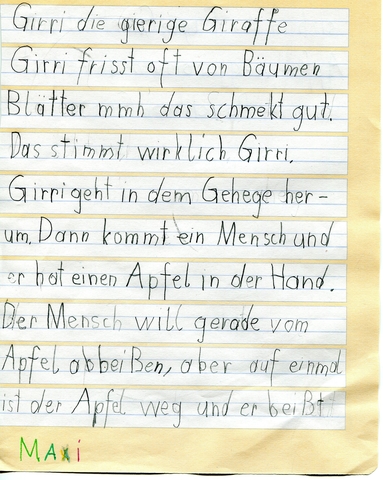 Girri die gierige Giraffe
Girri frisst oft von Bäumen
Blätter mmh das schmekt gut.
Das stimmt wirklich Girri.
Girri geht in dem Gehege her-
um. Dann kommt ein Mensch und
er hat einen Apfel in der Hand.
Der Mensch will gerade vom
Apfel abbeißen, aber auf einmal
ist der Apfel weg und er beißt
Maxi